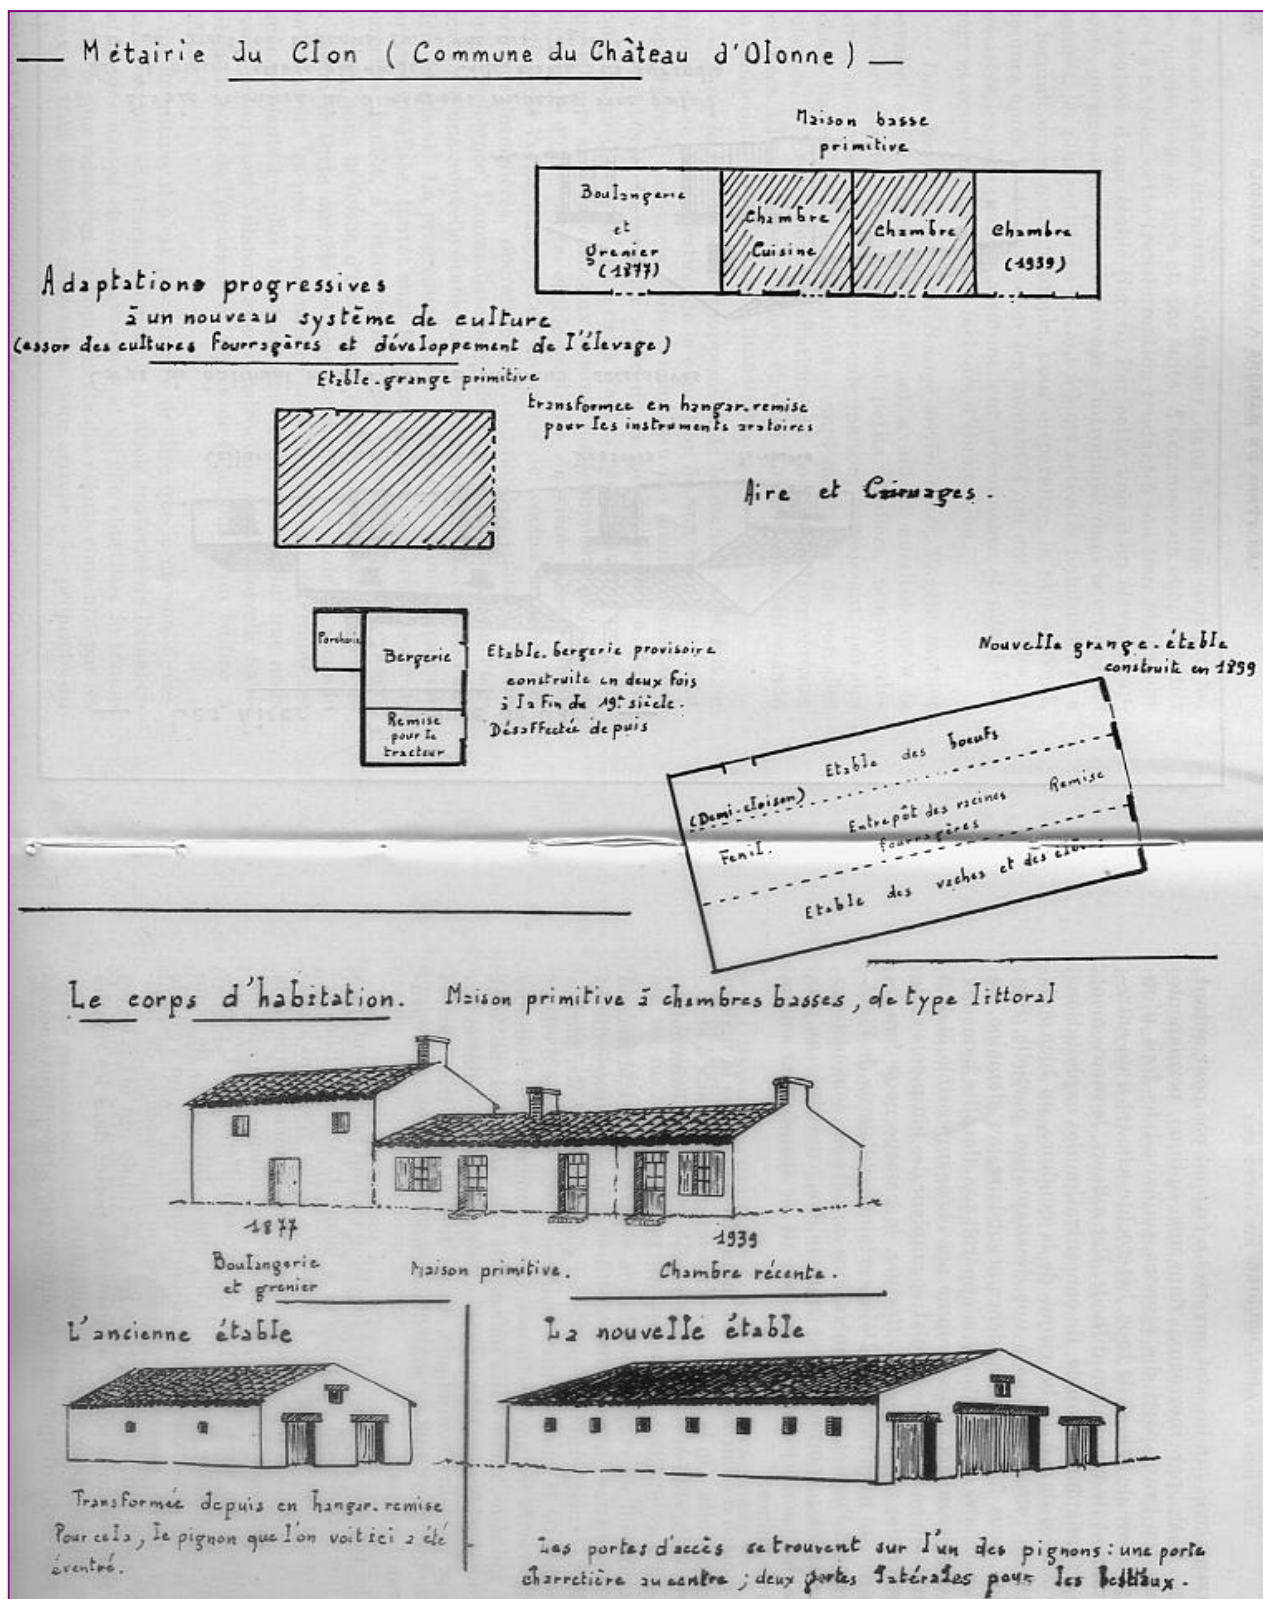 Métairie du Clon ( Commune du Château d'Olonne )
Maison basse
primitive
Boulangerie
et
grenier
(1877)
Chambre
Cuisine
Chambre
Chambre
(1939)
Adaptations progressives
à un nouveau système de culture
(essor des cultures fourragères et développement de l'élevage)
Etable-grange primitive
transformée en hangar-remise
pour les instruments aratoires
Aire et
Porcherie
Bergerie
Remise
pour le
tracteur
Etable-bergerie provisoire
construite en deux fois
à la fin du 19e siècle.
Désaffectée depuis
Nouvelle grange-étable
construite en 1899
Etable des boeufs
(Demi-cloison)
Fenil.
Entrepôt des racines
fourragères
Remise
Etable des vaches et des
Le corps d'habitation. Maison primitive à chambres basses, de type littoral
1877
Boulangerie
et grenier
Maison primitive.
1939
Chambre récente.
L'ancienne étable
Transformée depuis en hangar-remise
Pour cela, le pignon que l'on voit ici a été
éventré.
La nouvelle étable
Les portes d'accès se trouvent sur l'un des pignons : une porte
charretière au centre ; deux portes latérales pour les bestiaux.